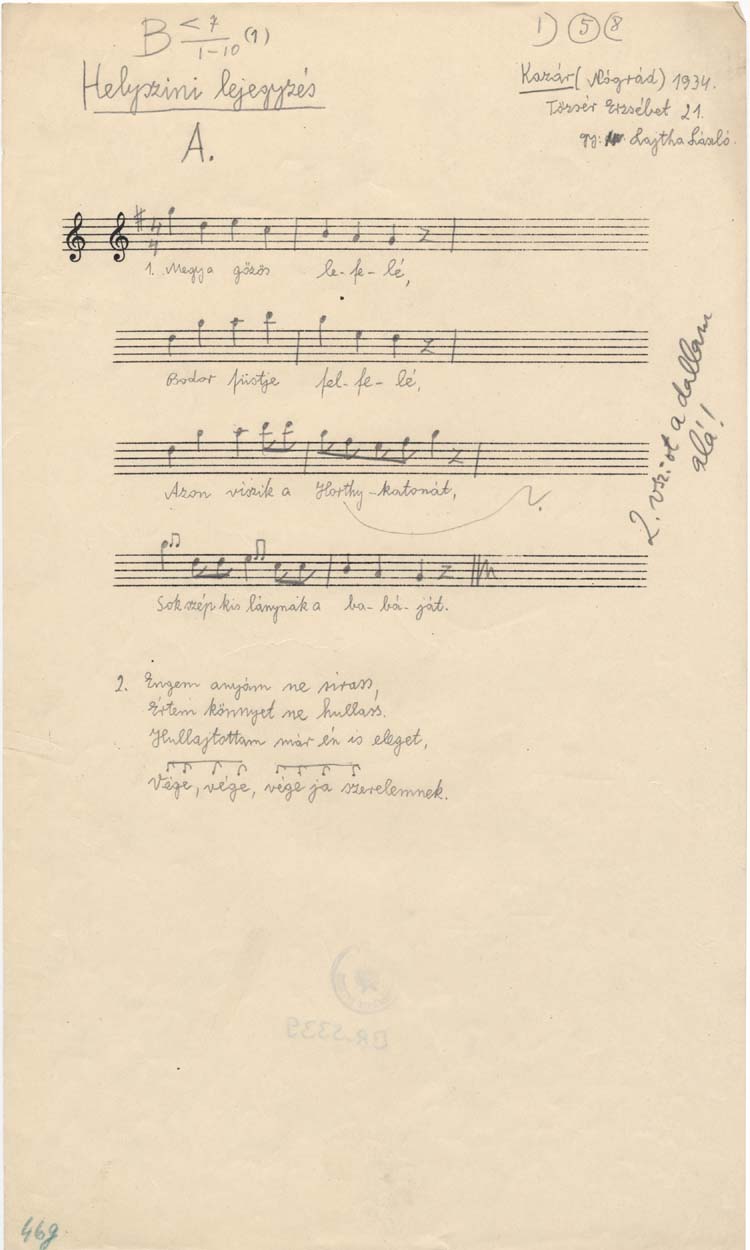 B < 7
1-10 (1)
1) 5 (8
Helyszini lejegyzés
A.
Kazár (Nógrád) 1934.
Tőzsér Erzsébet 21.
gy: Lajtha László.
4
4
1. Megy a gőzös le-fe-lé,
Bodor füstje fel-fe-lé,
Azon viszik a Horthy-katonát,
Sok szép kis lánynak a ba-bá-ját.
2. vsz:-ot a dallam
alá!
2. Engem anyám ne sirass,
Értem könnyet ne hullass.
Hullajtottam már én is eleget,
Vége, vége, vége ja szerelemnek.
BR-5339
469